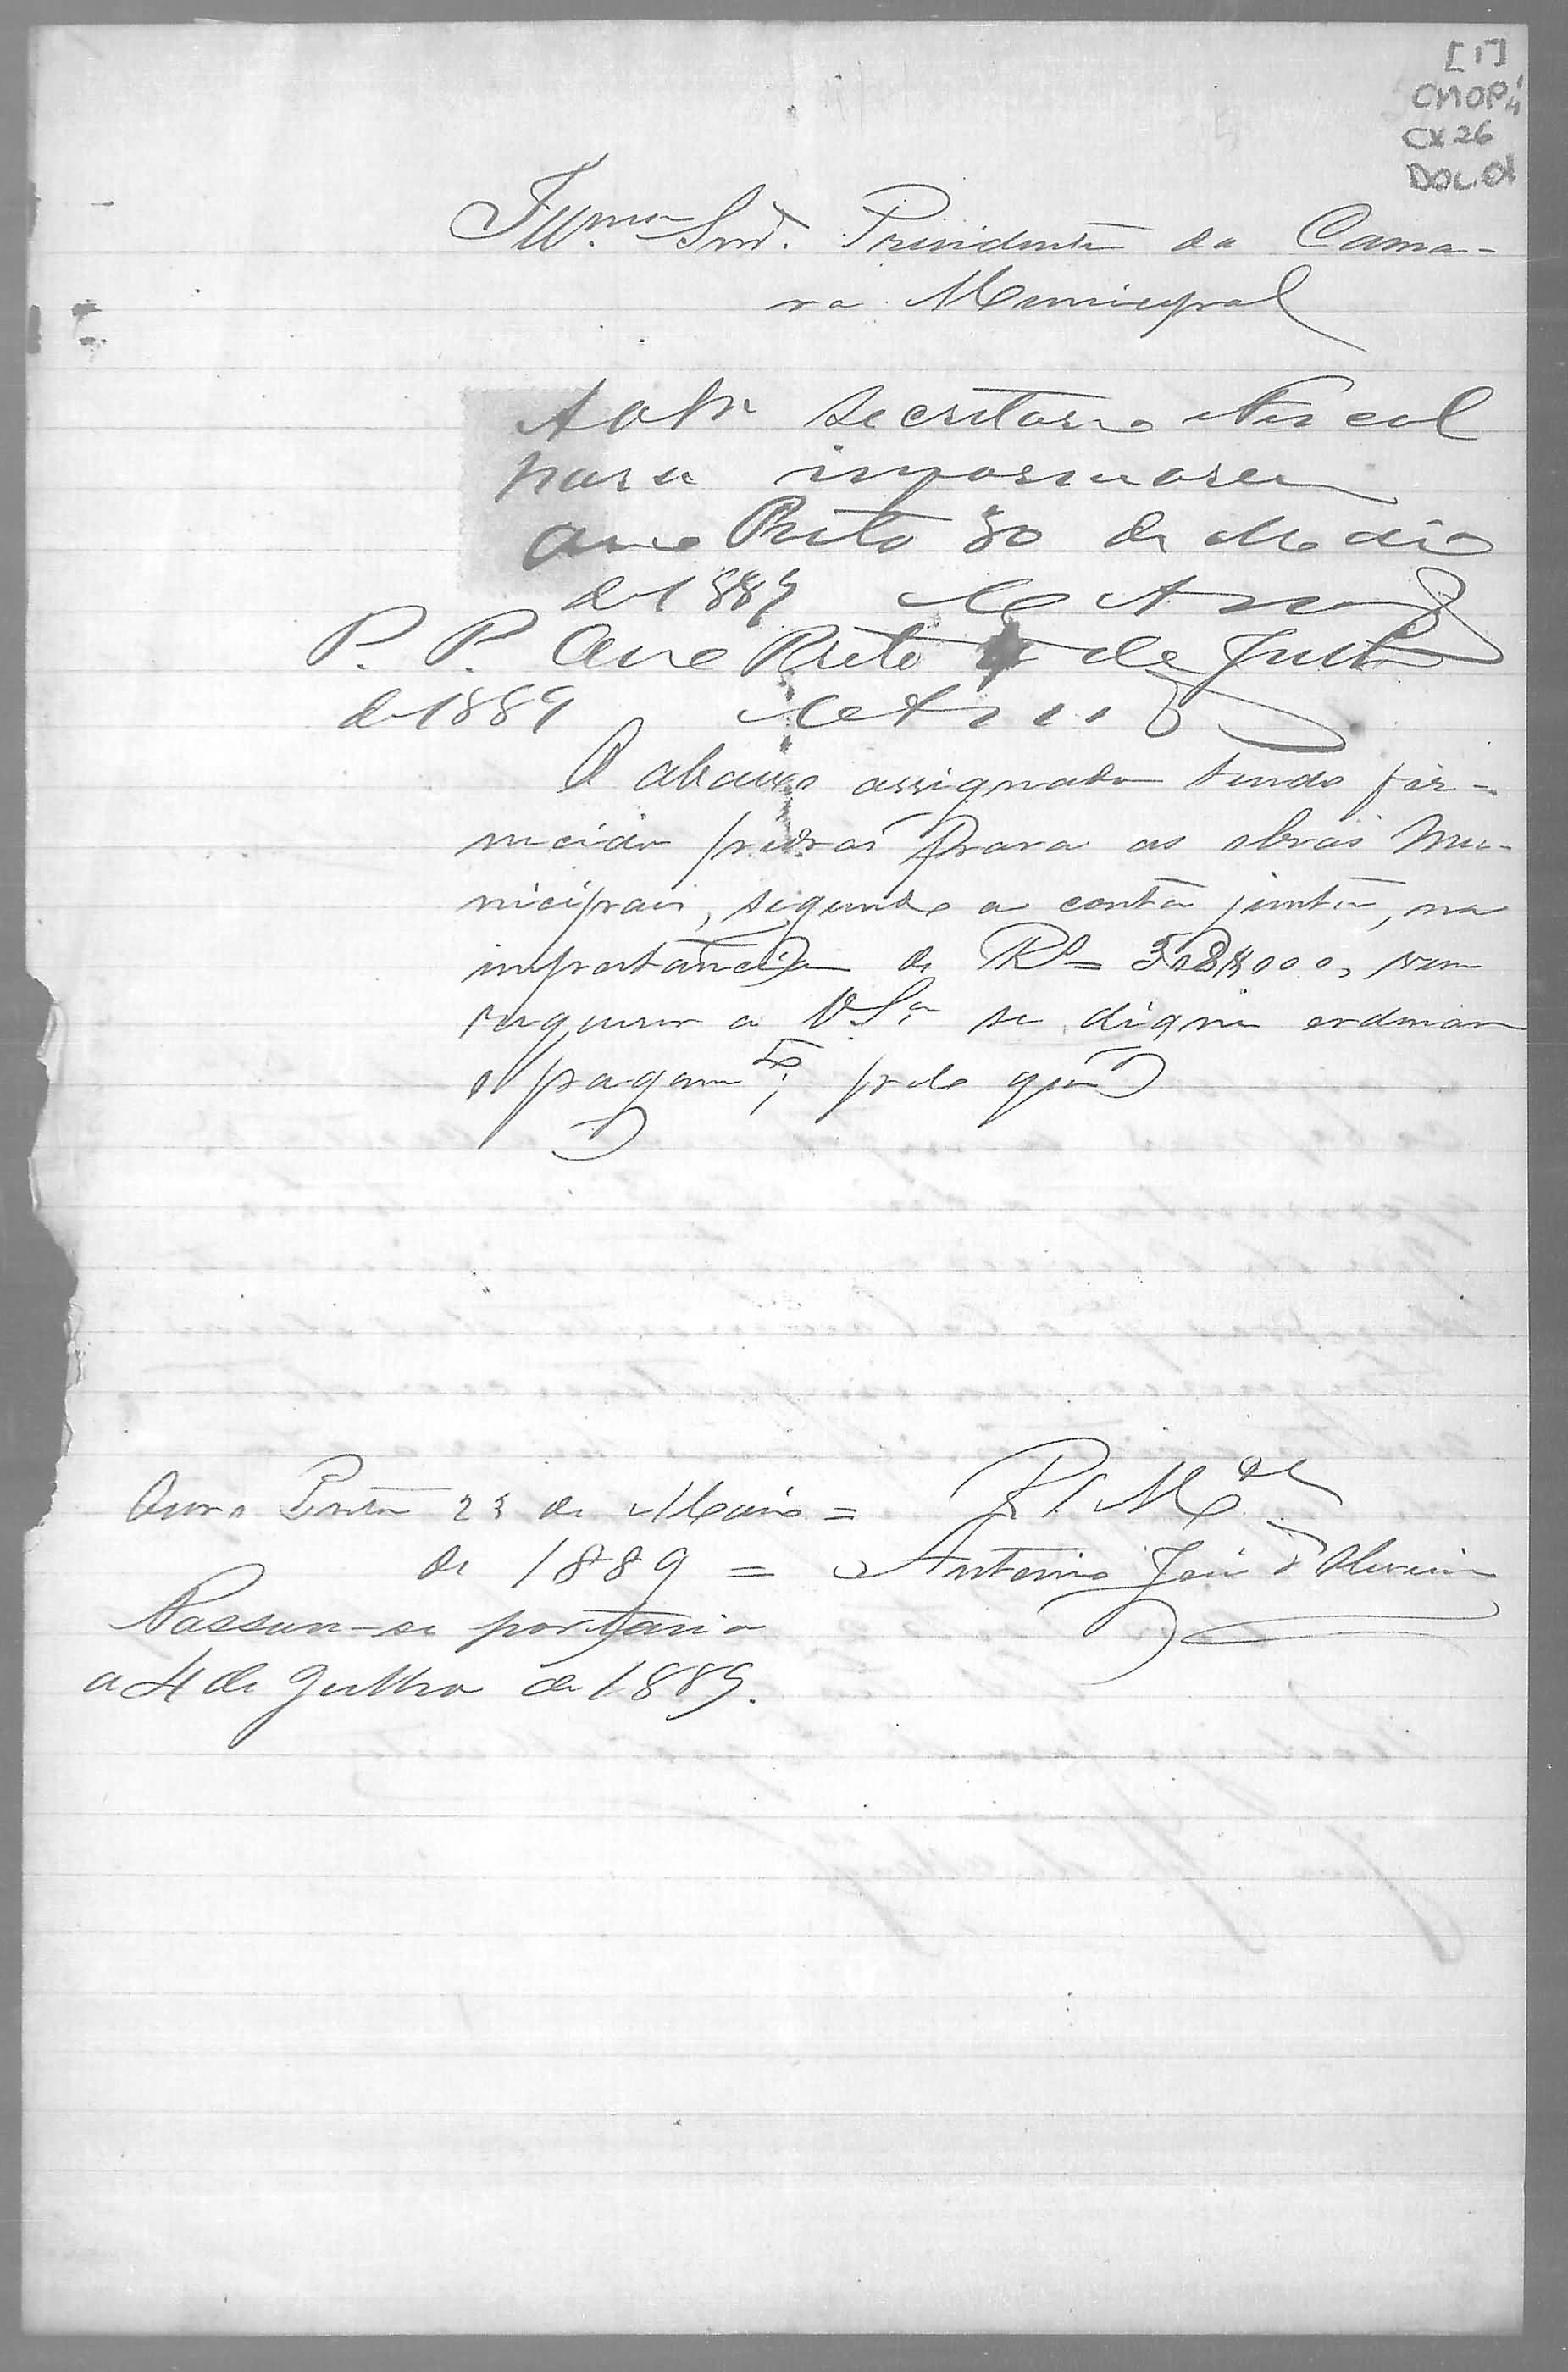 [1]
CMOP
CX 26
DOC 01
Illmo Snr. Presidente da Cama-
ra Municipal
Ao Sr Secretario Fiscal
para informarem
Ouro Preto 30 de Maio
de 1889
P. P. Ouro Preto de Julho
de 1889
O abaixo assignado tendo for-
necido pedras para as obras Mu-
nicipais, segundo a conta junta, na
importancia de Rs = 508$000, vem
requerer a V. Sa se digne ordenar
o pagamto, pelo que
E. R. Mce
Ouro Preto 23 de Maio =
de 1889 = Antonio José d'Oliveira
Passou-se portaria
a 4 de Julho de 1889.